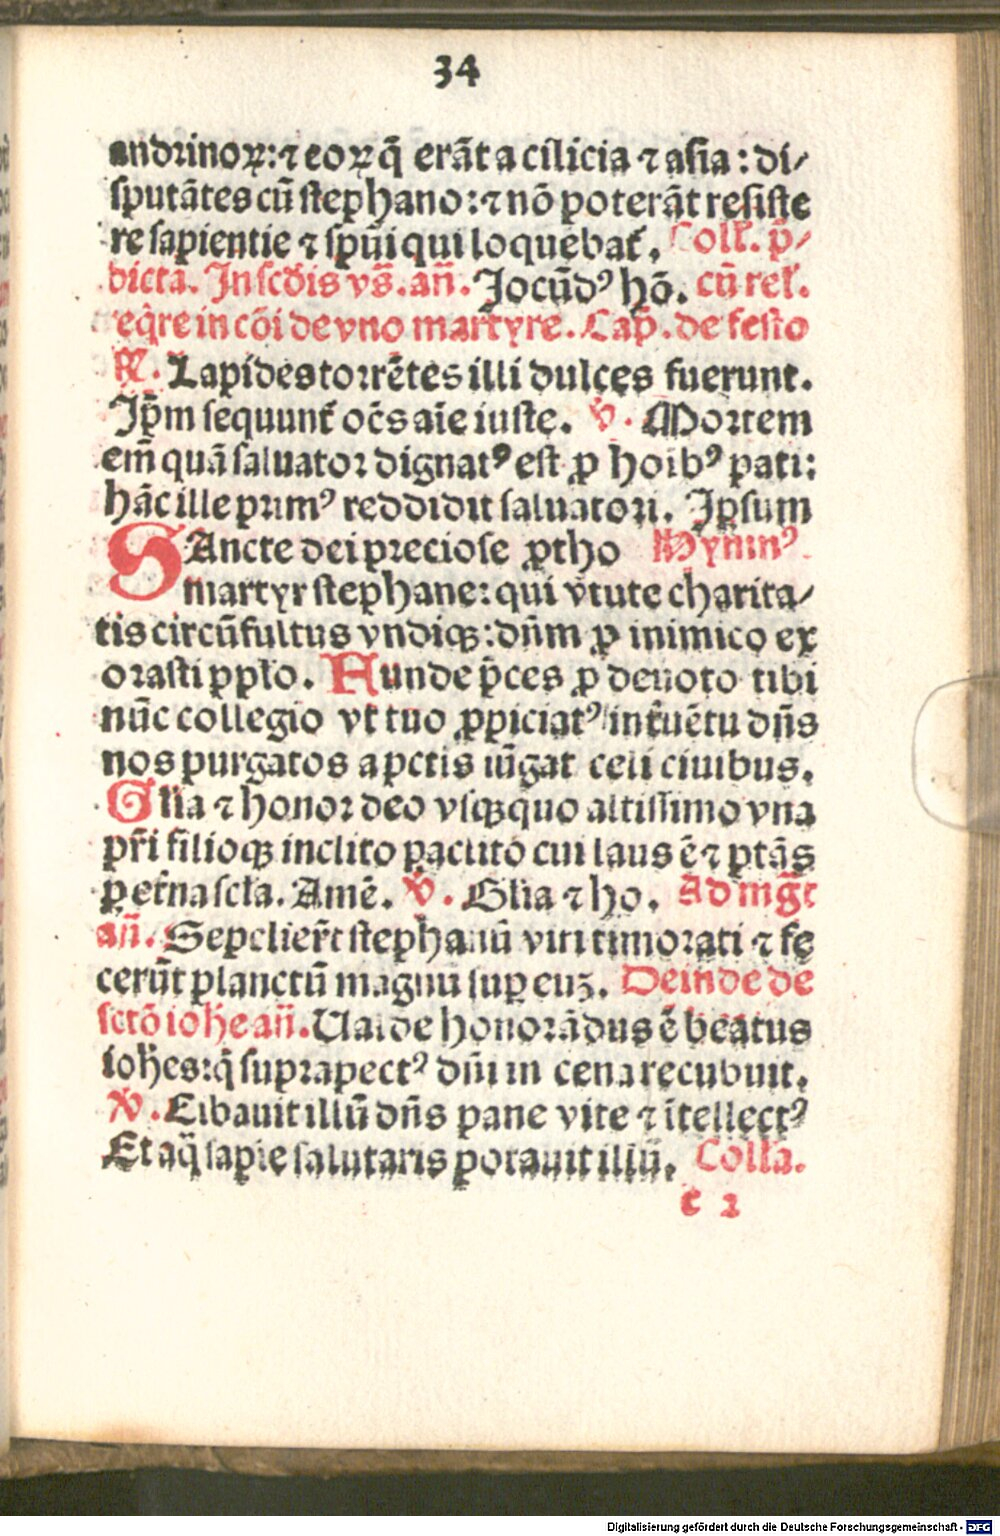 34
andrinoꝝ: ⁊ eoꝝ q̄ erāt a cilicia ⁊ asia: di⸗
sputātes cū stephano: ⁊ nō poterāt resiste
re sapientie ⁊ spūi qui loquebat᷑. Coll᷑. p̄⸗
dicta. In scd̄is vs̄. an̄. Jocūdꝰ hō. cū rel᷑.
eq̄re in cōi de vno martyre. Cap̄. de festo
℟. Lapides torrētes illi dulces fuerunt.
Ip̄m sequunt᷑ oēs aīe iuste. ℣. Mortem
em̄ quā saluator dignatꝰ est ꝓ hoībꝰ pati:
hāc ille primꝰ reddidit saluatori. Ipsum
SAncte dei preciose ꝓtho Hymnꝰ
martyr stephane: qui v̄tute charita⸗
tis circūfultus vndiqꝫ: dn̄m ꝓ inimico ex
orasti ppło. Funde p̄ces ꝓ deuoto tibi
nūc collegio vt tuo ꝓpiciatꝰ int̄uētu dn̄s
nos purgatos a pctis iūgat celi ciuibus.
Głia ⁊ honor deo vsqꝫquo altissimo vna
pr̄i filioqꝫ inclito paclito cui laus ē ⁊ ptās
ꝑ et̄na scła. Amē. ℣. Głia ⁊ ho. Ad mḡt
an̄. Sepelier̄t stephanū viri timorati ⁊ fe
cerūt planctū magnū suꝑ euꝫ. Deinde de
sctō ioh̄e an̄. Ualde honorādus ē beatus
ioh̄es: q̄ supra pectꝰ dn̄i in cena recubuit.
℣. Cibauit illū dn̄s pane vite ⁊ ītellectꝰ
Et aq̄ sapīe salutaris potauit illū. Colła.
e 2
Digitalisierung gefördert durch die Deutsche Forschungsgemeinschaft - DFG